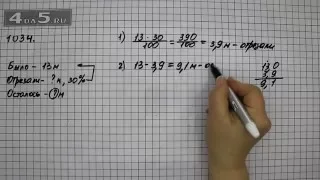 4 05 5.ru
1034.
Было - 13 м
Отрезали - ? м, 30%
Осталось - ? м
1) 13 · 30 / 100 = 390 / 100 = 3,9 м - отрезали
2) 13 - 3,9 = 9,1 м - о
13,0
3,9
9,1